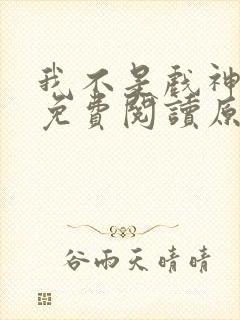 我不是戲神
免費閱讀原
谷雨天晴晴